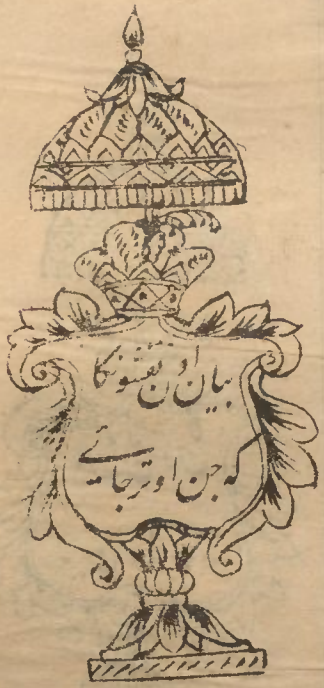 بیان اون نقشونکا
که جن اوتر جائے